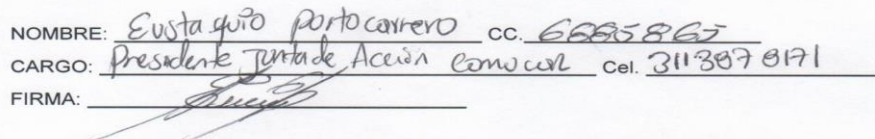 NOMBRE: Eustaquio portocarrero CC. 6685865
CARGO: Presidente Junta de Acción comucun Cel. 3113878171
FIRMA: